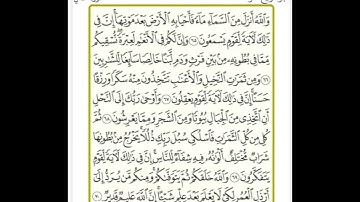 وَاللَّهُ أَنزَلَ مِنَ السَّمَاءِ مَاءً فَأَحْيَا بِهِ الْأَرْضَ بَعْدَ مَوْتِهَا إِنَّ فِي
ذَٰلِكَ لَآيَةً لِّقَوْمٍ يَسْمَعُونَ ٦٥ وَإِنَّ لَكُمْ فِي الْأَنْعَامِ لَعِبْرَةً نُّسْقِيكُم
مِّمَّا فِي بُطُونِهِ مِن بَيْنِ فَرْثٍ وَدَمٍ لَّبَنًا خَالِصًا سَائِغًا لِّلشَّارِبِينَ
٦٦ وَمِن ثَمَرَاتِ النَّخِيلِ وَالْأَعْنَابِ تَتَّخِذُونَ مِنْهُ سَكَرًا وَرِزْقًا
حَسَنًا إِنَّ فِي ذَٰلِكَ لَآيَةً لِّقَوْمٍ يَعْقِلُونَ ٦٧ وَأَوْحَىٰ رَبُّكَ إِلَى النَّحْلِ
أَنِ اتَّخِذِي مِنَ الْجِبَالِ بُيُوتًا وَمِنَ الشَّجَرِ وَمِمَّا يَعْرِشُونَ ٦٨ ثُمَّ
كُلِي مِن كُلِّ الثَّمَرَاتِ فَاسْلُكِي سُبُلَ رَبِّكِ ذُلُلًا يَخْرُجُ مِن بُطُونِهَا
شَرَابٌ مُّخْتَلِفٌ أَلْوَانُهُ فِيهِ شِفَاءٌ لِّلنَّاسِ إِنَّ فِي ذَٰلِكَ لَآيَةً لِّقَوْمٍ
يَتَفَكَّرُونَ ٦٩ وَاللَّهُ خَلَقَكُمْ ثُمَّ يَتَوَفَّاكُمْ وَمِنكُم مَّن يُرَدُّ إِلَىٰ
أَرْذَلِ الْعُمُرِ لِكَيْ لَا يَعْلَمَ بَعْدَ عِلْمٍ شَيْئًا إِنَّ اللَّهَ عَلِيمٌ قَدِيرٌ ٧٠